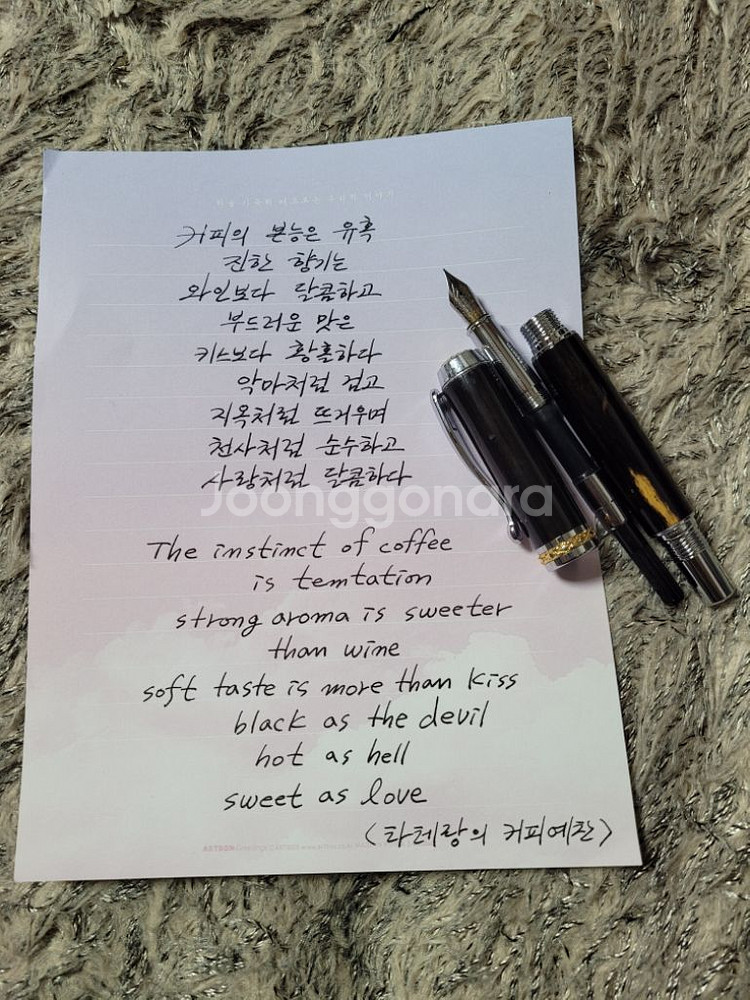 커피의 본능은 유혹
진한 향기는
와인보다 달콤하고
부드러운 맛은
키스보다 황홀하다
악마처럼 검고
지옥처럼 뜨거우며
천사처럼 순수하고
사랑처럼 달콤하다
Joonggonara
The instinct of coffee
is temtation
strong aroma is sweeter
than wine
soft taste is more than kiss
black as the devil
hot as hell
sweet as love
<타테랑의 커피예찬>